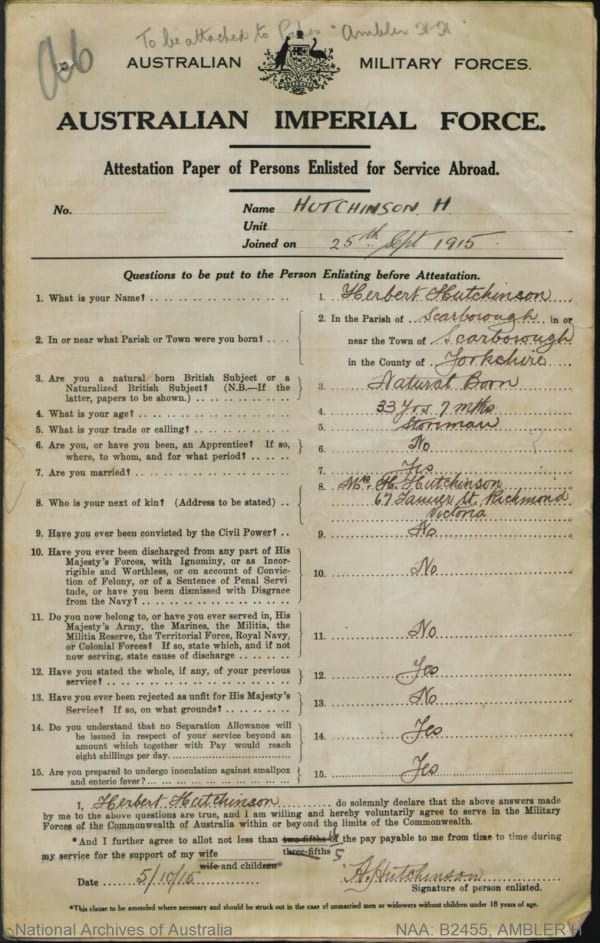 To be attached to "Ambler
AUSTRALIAN MILITARY FORCES.
AUSTRALIAN IMPERIAL FORCE.
Attestation Paper of Persons Enlisted for Service Abroad.
No. Name HUTCHINSON. H.
Unit
Joined on 25th Sept 1915.
Questions to be put to the Person Enlisting before Attestation.
1. What is your Name? 1. Herbert Hutchinson
2. In or near what Parish or Town were you born? 2. In the Parish of Scarborough in or
near the Town of Scarborough
in the County of Yorkshire
3. Are you a natural born British Subject or a
Naturalized British Subject? (N.B.—If the
latter, papers to be shown.) 3. Natural Born
4. What is your age? 4. 33 Yrs 7 mths
5. What is your trade or calling? 5. Storeman
6. Are you, or have you been, an Apprentice? If so,
where, to whom, and for what period? 6. No
7. Are you married? 7. Yes
8. Who is your next of kin? (Address to be stated) 8. Mrs. H. Hutchinson
67 Tanner St. Richmond
Victoria
9. Have you ever been convicted by the Civil Power? 9. No
10. Have you ever been discharged from any part of His
Majesty's Forces, with Ignominy, or as Incor-
rigible and Worthless, or on account of Convic-
tion of Felony, or of a Sentence of Penal Servi
tude, or have you been dismissed with Disgrace
from the Navy? 10. No
11. Do you now belong to, or have you ever served in, His
Majesty's Army, the Marines, the Militia, the
Militia Reserve, the Territorial Force, Royal Navy,
or Colonial Forces? If so, state which, and if not
now serving, state cause of discharge 11. No
12. Have you stated the whole, if any, of your previous
service? 12. Yes
13. Have you ever been rejected as unfit for His Majesty's
Service? If so, on what grounds? 13. No
14. Do you understand that no Separation Allowance will
be issued in respect of your service beyond an
amount which together with Pay would reach
eight shillings per day. 14. Yes
15. Are you prepared to undergo inoculation against smallpox
and enteric fever? 15. Yes
I, Herbert Hutchinson do solemnly declare that the above answers made
by me to the above questions are true, and I am willing and hereby voluntarily agree to serve in the Military
Forces of the Commonwealth of Australia within or beyond the limits of the Commonwealth.
*And I further agree to allot not less than two-fifths of the pay payable to me from time to time during
three-fifths
my service for the support of my wife
wife and children*
Date 5/10/15 H. Hutchinson
Signature of person enlisted.
*This clause to be amended where necessary and should be struck out in the case of unmarried men or widowers without children under 18 years of age.
National Archives of Australia NAA: B2455, AMBLER H